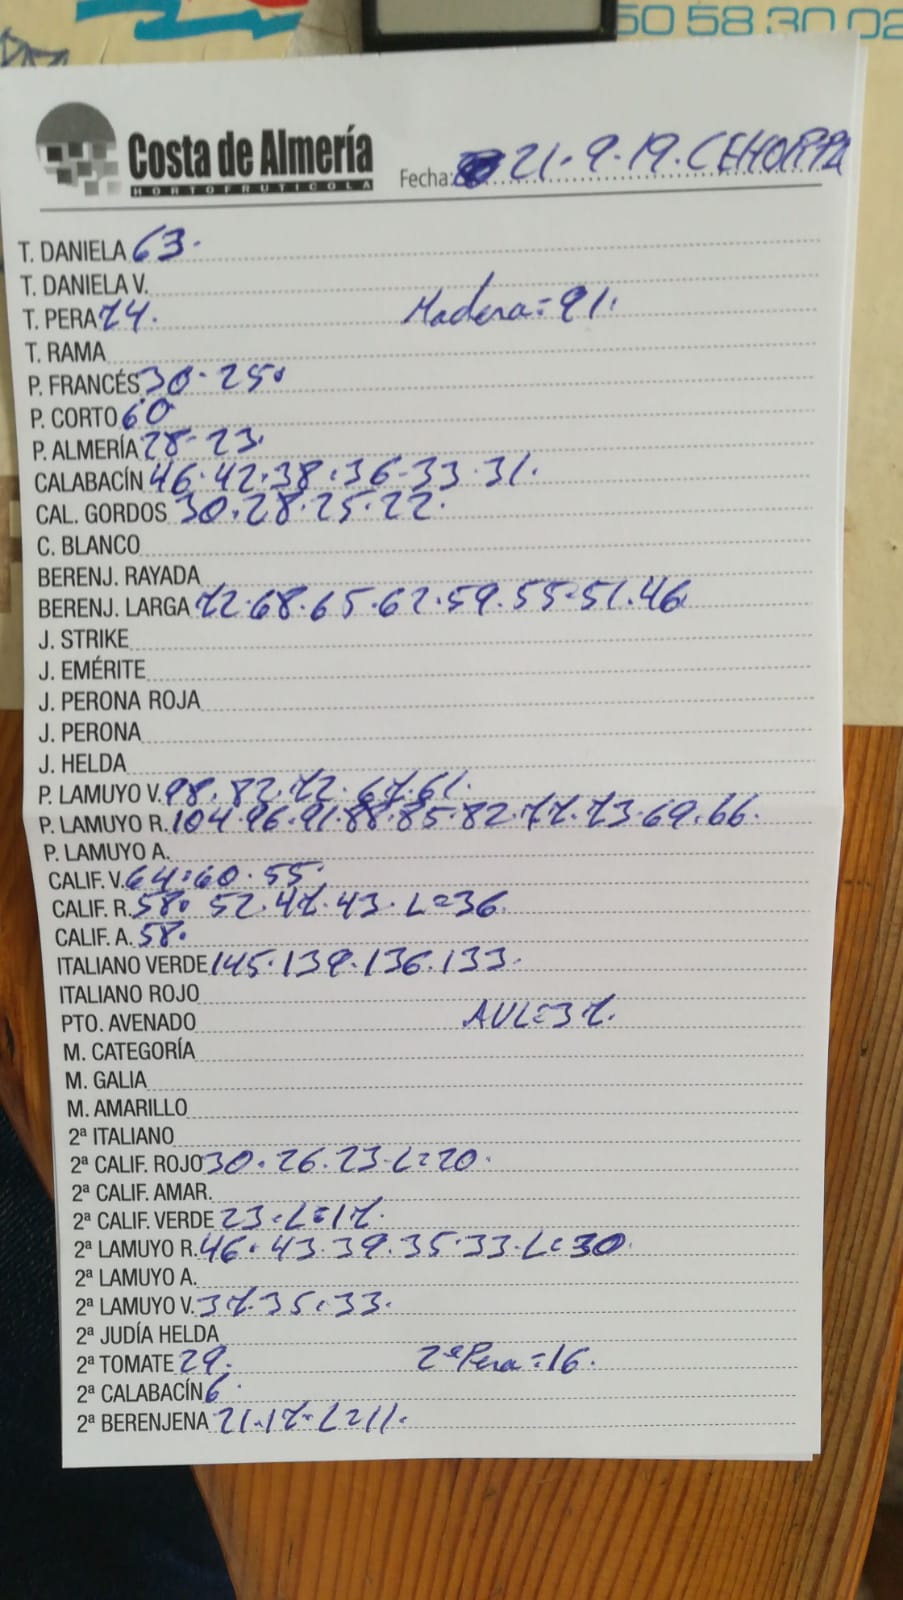 50 58 30 02
Costa de Almería
HORTOFRUTICOLA
Fecha: 21.9.19. CEHORPA
T. DANIELA 63.
T. DANIELA V.
T. PERA 74. Madera = 91.
T. RAMA
P. FRANCÉS 30. 25.
P. CORTO 60
P. ALMERÍA 28-23.
CALABACÍN 46.42.38.36-33.31.
CAL. GORDOS 30.28.25.22.
C. BLANCO
BERENJ. RAYADA
BERENJ. LARGA 72.68.65.62.59.55-51.46
J. STRIKE
J. EMÉRITE
J. PERONA ROJA
J. PERONA
J. HELDA
P. LAMUYO V. 98.82.72.67.61.
P. LAMUYO R. 104.96.91.88.85.82.77.73.69.66.
P. LAMUYO A.
CALIF. V. 64.60.55.
CALIF. R. 58. 52.47.43.L=36
CALIF. A. 58.
ITALIANO VERDE 145.139.136.133.
ITALIANO ROJO
PTO. AVENADO AVL=37.
M. CATEGORÍA
M. GALIA
M. AMARILLO
2ª ITALIANO
2ª CALIF. ROJO 30.26.23-L=20.
2ª CALIF. AMAR.
2ª CALIF. VERDE 23.L=17.
2ª LAMUYO R. 46.43.39.35.33.L=30.
2ª LAMUYO A.
2ª LAMUYO V. 37.35.33.
2ª JUDÍA HELDA
2ª TOMATE 29. 2ª Pera = 16.
2ª CALABACÍN 6.
2ª BERENJENA 21.17-L=11.